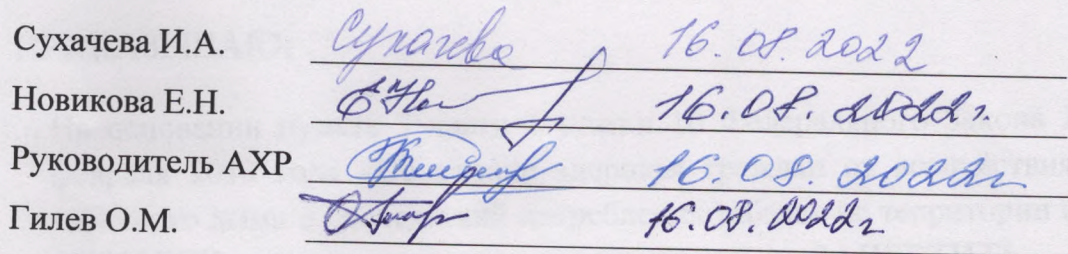 Сухачева И.А. Сухачева 16.08.2022
Новикова Е.Н. 16.08.2022г.
Руководитель АХР 16.08.2022г
Гилев О.М. 16.08.2022г